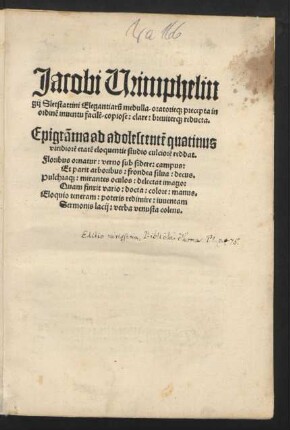 Jacobi Uuimphelin
gij Sletstatini Elegantiarū medulla: oratoriaq; precepta in
ordinē inuentu facilē: copiose: clare: breuiterq; reducta.
Epigrāma ad adolescentē quatinus
viridiorē etatē eloquentie studio cultiorē reddat.
Floribus ornatur: verno sub sidere: campus:
Et parit arboribus: frondea silua: decus.
Pulchraq;: mirantes oculos: delectat imago:
Quam finxit vario: docta: colore: manus.
Eloquio teneram: poteris redimire: iuuentam
Sermonis lacij: verba venusta colens.
Editio